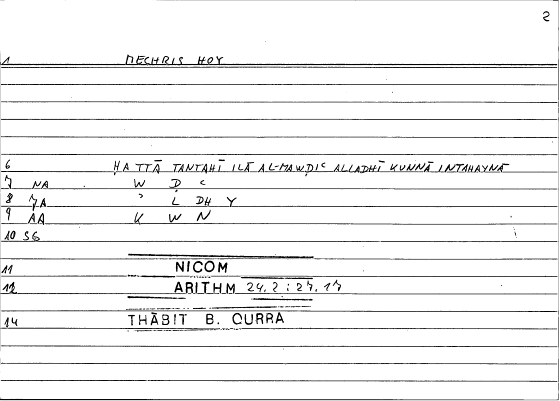 2
1 MECHRIS HOY
6 ḤATTĀ TANTAHĪ ILĀ AL-MAWḌIᶜ ALLADHĪ KUNNĀ INTAHAYNĀ
7 NA W Ḍ ᶜ
8 JA ʾ L DH Y
9 AA K W N
10 SG
11 NICOM
12 ARITHM 24.2 : 27.17
14 THĀBIT B. QURRA